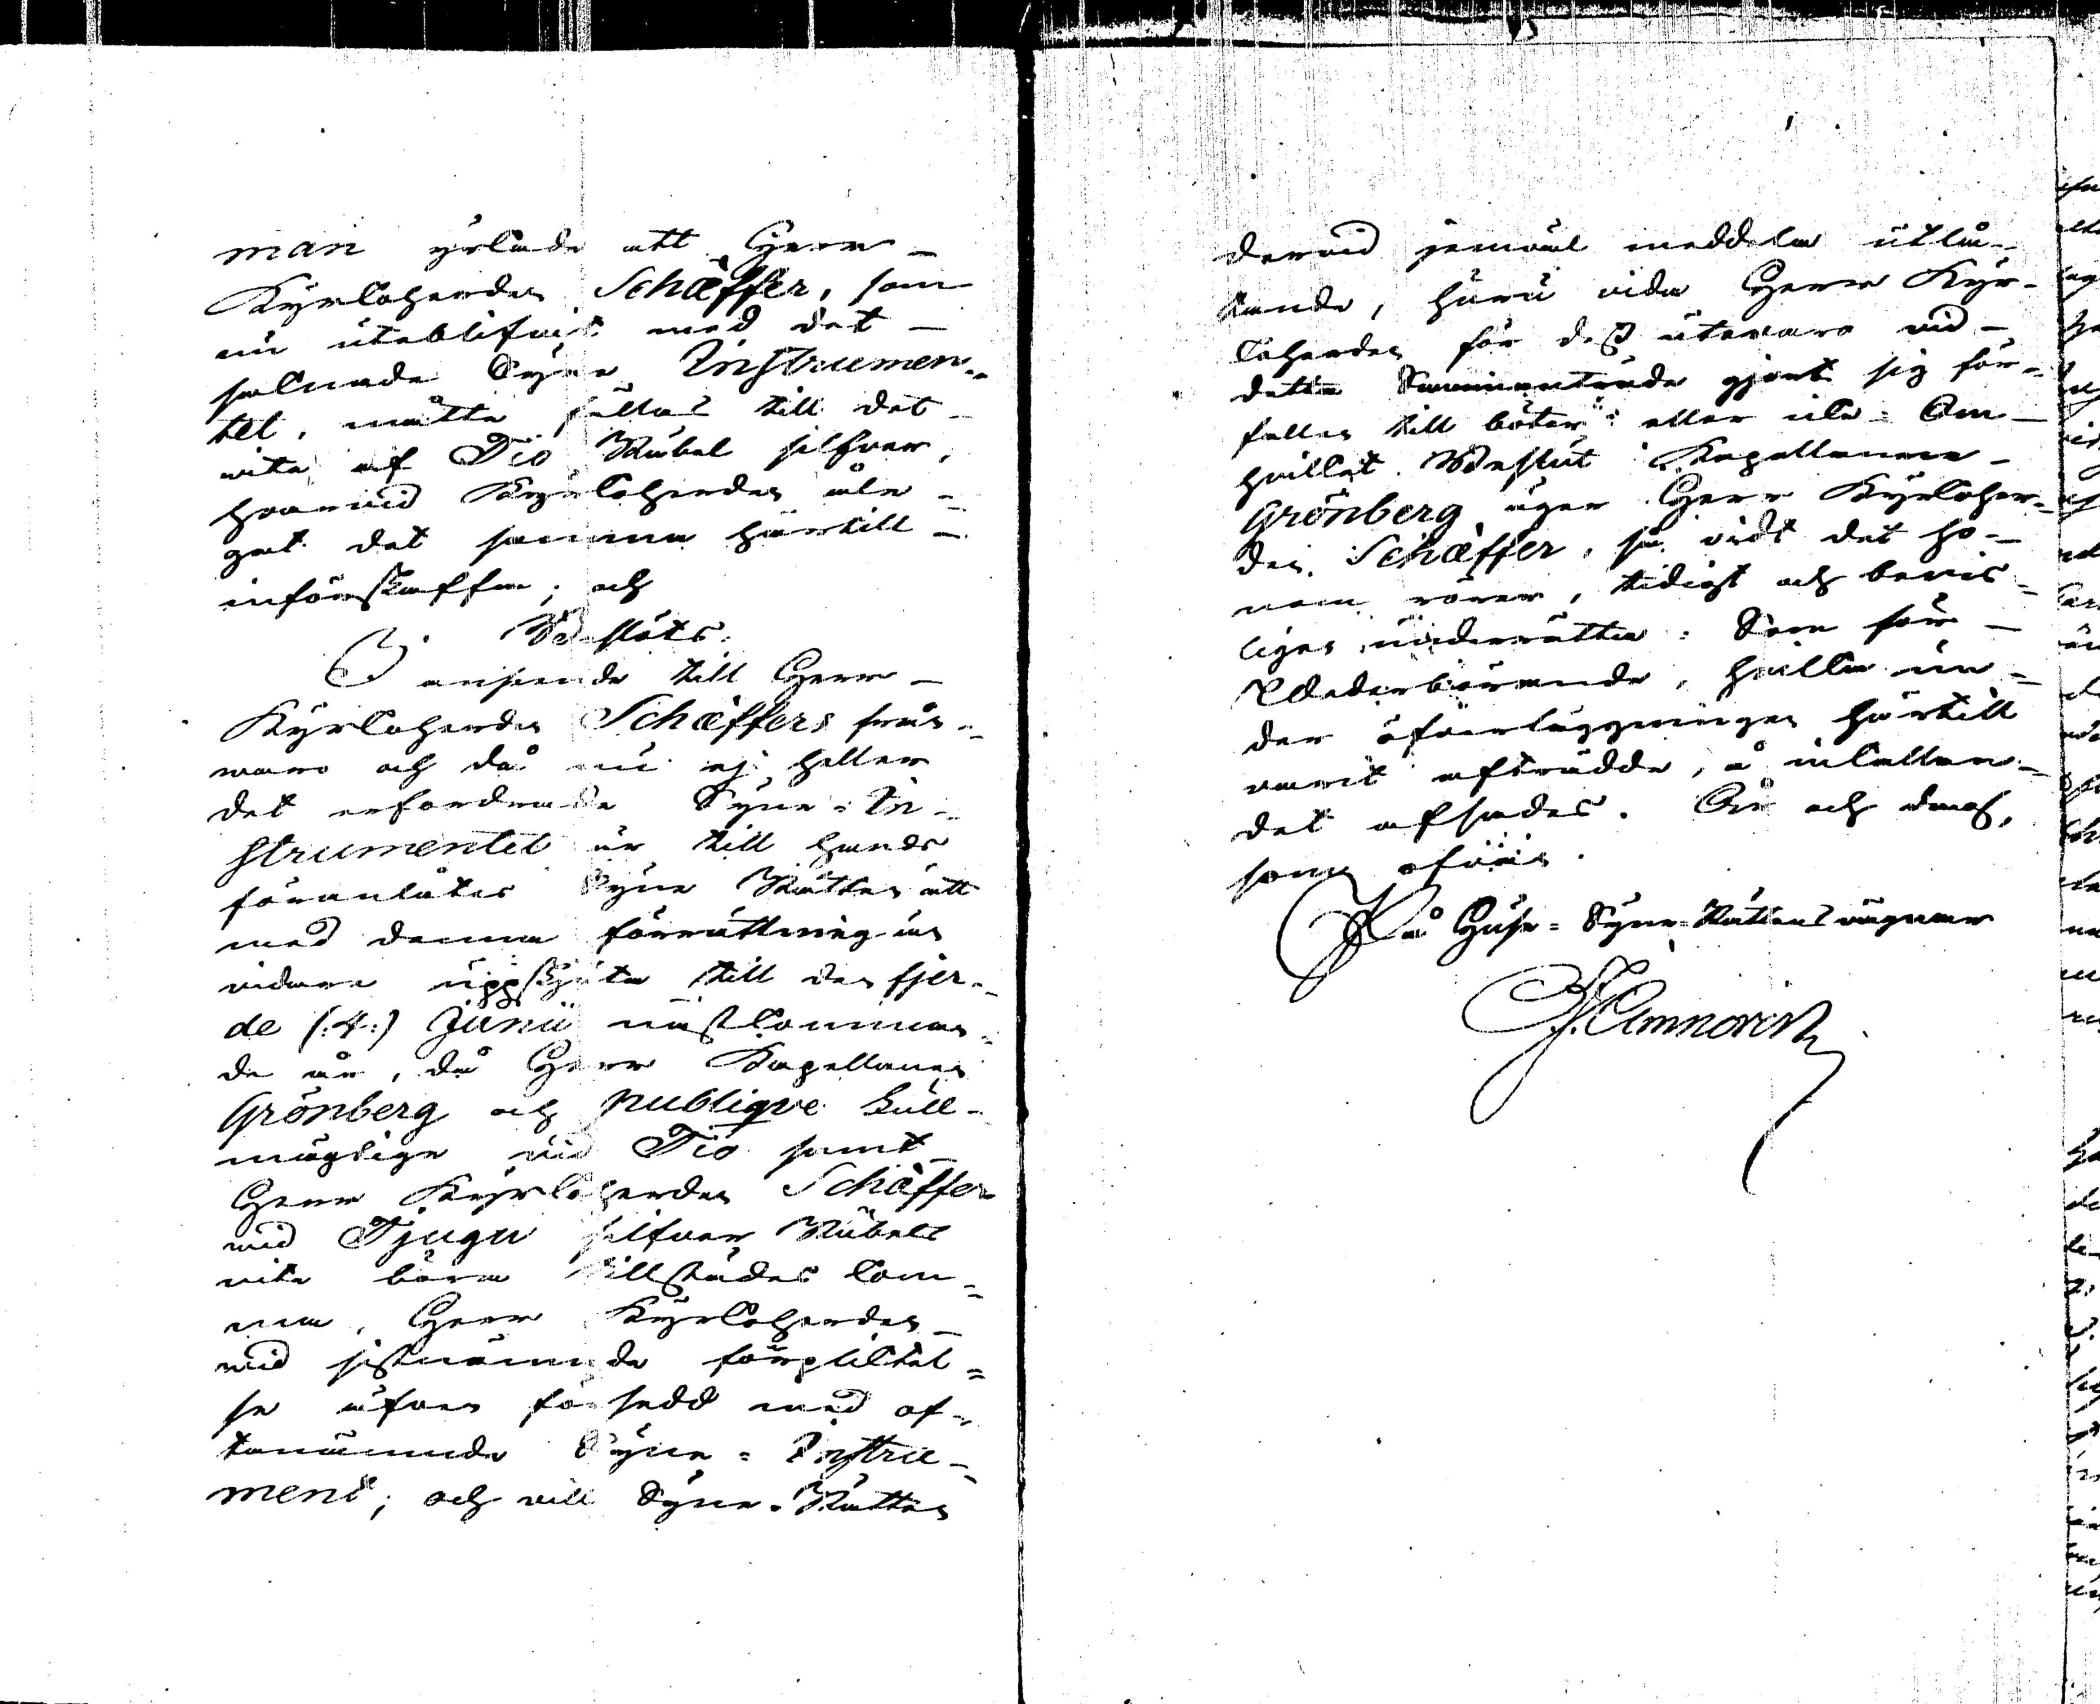 man yrkade att Herr
Kyrkoherden Schæffer, som
nu uteblifvit med det
saknade Syne Instrumen-
tet, måtte fällas till det
vite af Tio Rubel silfver,
hvarvid Kyrkoherden åle-
gat det samma härtill
införskaffa; och
Beslöts:
I anseende till Herr
Kyrkoherden Schæffers från-
varo och då nu ej heller
det erfordrade Syne-In-
strumentet är till hands
föranlåtes Syne Rätten att
med denna förrättning än
vidare uppskjuta till den fjer-
de (:4:) Junii nästkomman-
de år, då Herr Kapellanen
Grönberg och publique full-
mägtige vid Tio samt
Herr Kyrkoherden Schæffer
vid Tjugu silfver Rubels
vite böra tillstädes kom-
ma, Herr Kyrkoherden
vid sistnämnde förpliktel-
se äfven försedd med of-
tanämnde Syne-Instru-
ment; och vill Syne-Rätten
dervid jemväl meddela utlå-
tande, huru vida Herr Kyr-
koherden för dess utevaro vid
detta Sammanträde gjort sig för-
fallen till böter eller icke. Om
hvilket Beslut Kapellanen
Grönberg äger Herr Kyrkoher-
den Schæffer, så vidt det ho-
nom rörer, tidigt och bevis-
ligen underrätta: Som för
Wederbörande, hvilka un-
der öfverläggningen härtill
varit afträdde, å inkallan-
det afsades. År och dag,
som ofvan.
På Huse-Syne-Rättens vägnar